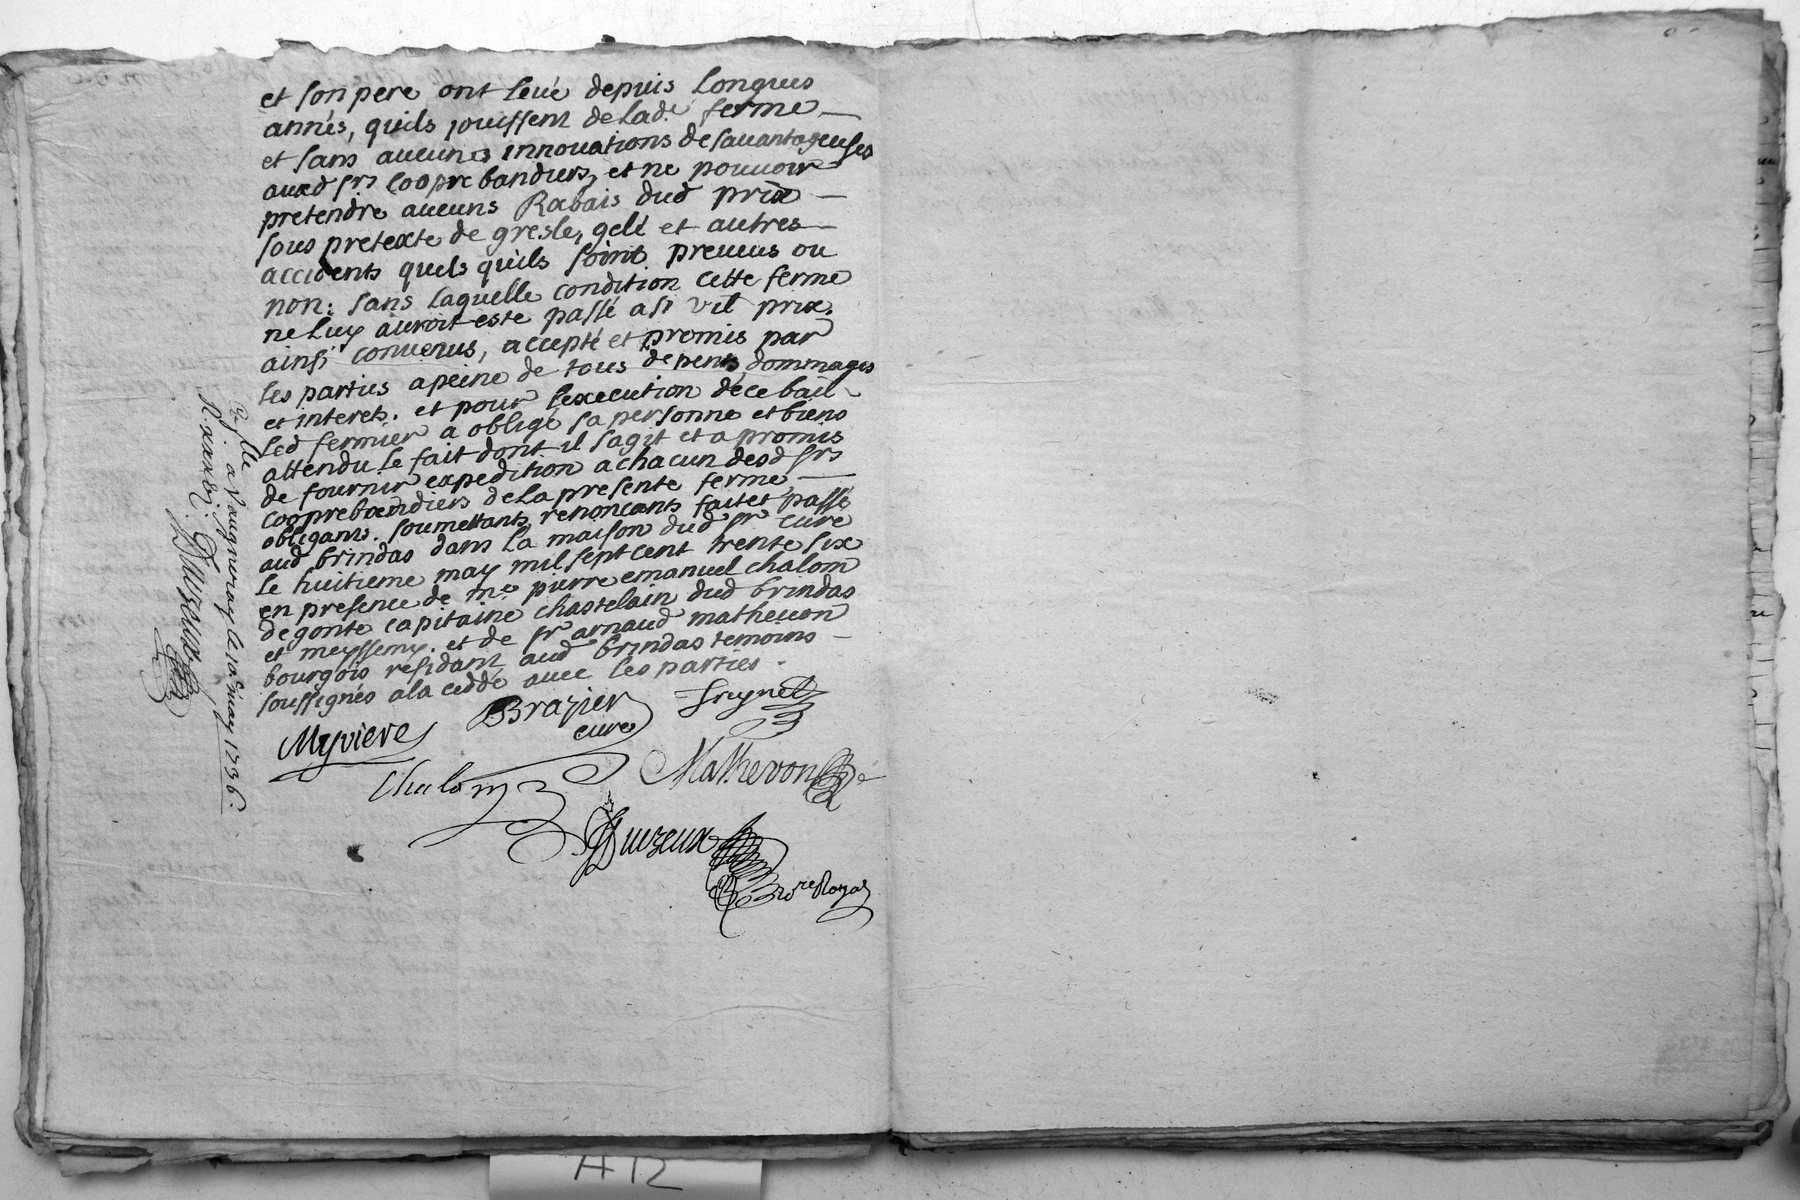 et son pere ont levé depuis longues
annés, quils jouissent de lade ferme
et sans aucunes innouations desauantageuses
auxd srs cooprebandiers, et ne pouuoir
pretendre aucuns Rabais dud prix
sous pretexte de gresle, gelé et autres
accidents quels quils soint preuus ou
non: sans laquelle condition cette ferme
ne luy auroit este passé a si vil prix.
ainsi conuenus, accepté et promis par
les parties a peine de tous depents, dommages
et interets. et pour lexecution de ce bail
led fermier a obligé sa personne et biens
attendu le fait dont il sagit et a promis
de fournir expedition a chacun desd srs
cooprebandiers de la presente ferme,
obligants. soumettants renonceants fait et passé
aud brindas dans la maison dud sr cure
le huitieme may mil sept cent trente six
en presence de me pierre emanuel chalom
degonte capitaine chastelain dud brindas
et meyssemy. et de sr arnaud matheuon
bourgois residant aud brindas temoins
soussignés a la cedde auec les parties.
Myviere
Brazier
cure
Chalom
Mathevon
Duzeux
nore Royal
a Vaugneray le 10e may 1736.
Duzeux
A12